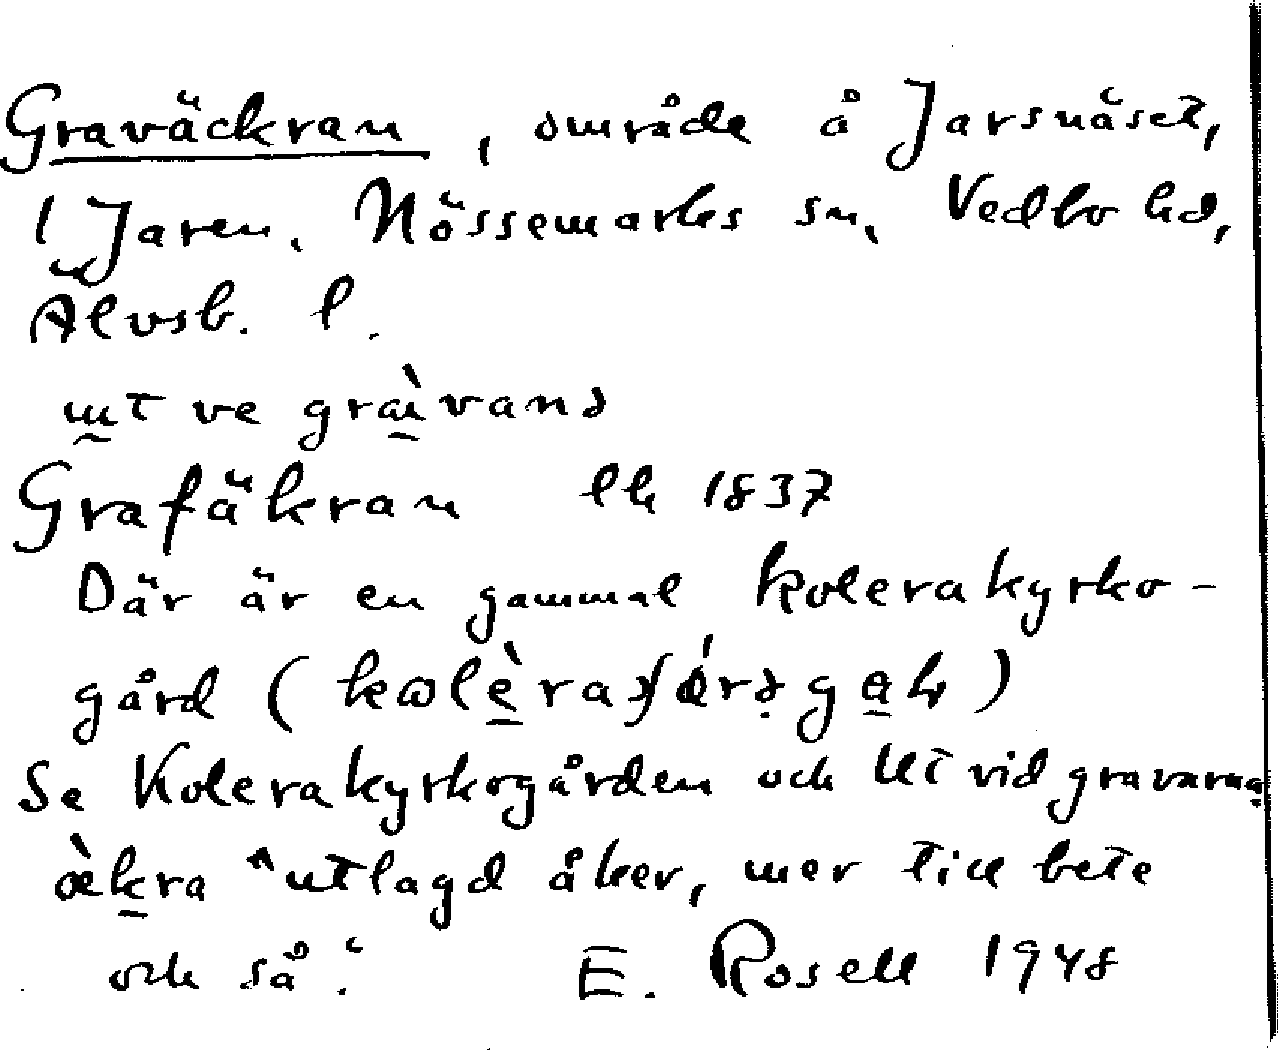 Graväckran, område å Jarsnäset,
i Jaren, Nössemarks sn, Vedbo hd,
Älvsb. l.
ut ve gràvanə
Grafäkran lk 1837
Där är en gammal kolerakyrko-
gård (
Se Kolerakyrkogården och Ut vid gravarna
æ̀kra "utlagd åker, mer till bete
och så". E. Rosell 1948